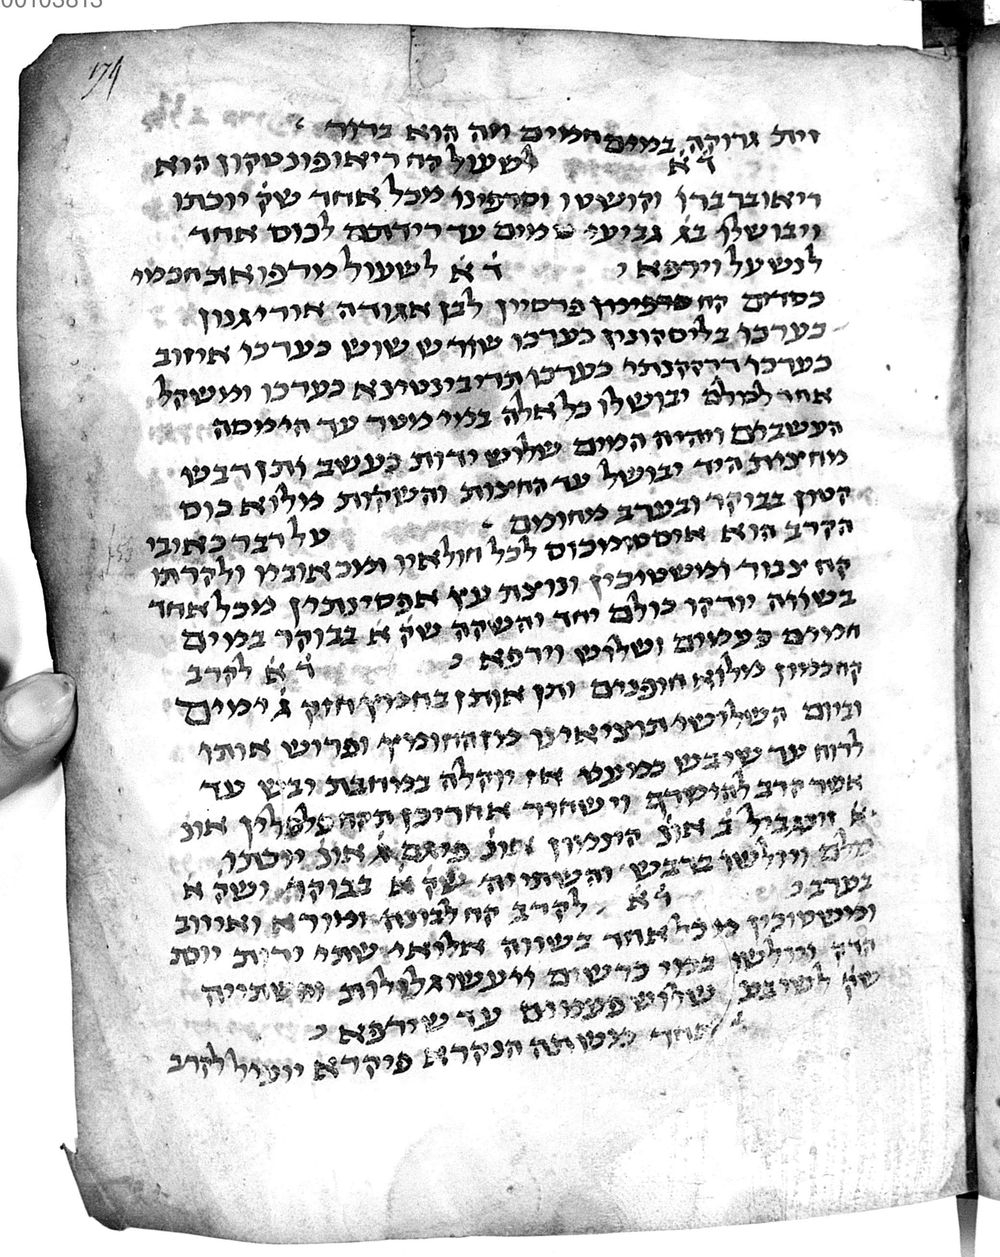 00103813
174
זית גרוקה במים חמים וזה הוא ברור
ד׳א׳ לשעול קח ריאופונטקון הוא
ריאוברברו וקושטו וסרפינו מכל אחד שק׳ יוכתו
ויבושלו בג׳ גביעי מים עד רידתם לכוס אחד
לנשעל וירפא ד׳ א׳ לשעול מרפואות חכמי
כסדים קח פרסיון לבן אגודה אוריגנון
כערכו בליסקונין כערכו שורש שוש כערכו איזוב
כערכו דרקקנתי כערכו תריבינטינא כערכו ומשקל
אחד לכולם יבושלו כל אלה במי מטר עד הימסה
העשבים ויהיה המים שלוש ידות כעשב ותן דבש
מחצית היד יבושל עד החצות והשקות מלוא כוס
קטון בבוקר ובערב מחומם
על דבר כאיבי
הקרב הוא איסטומכוס לכל חולאיו ומכאוביו ולקרתו
קח צנור ומשטיכין ונוצת עץ אפסינתין מכל אחד
בשווה יודקו כולם יחד והשקה שק׳ א׳ בבוקר במים
חמים פעמים ושלוש וירפא ד׳ א׳ לקרב
קח כמון מלוא חופנים ותן אותן בחמיץ חזק ג׳ ימים
וביום השלישי תוציאינו מן החומיץ ופרוש אותו
לרוח עד שיבש כמעט אז יוקלה במחבת יבש עד
אשר קרב להישרף וישחור אחרי כן תקח פלפלין אונ׳
א׳ זנגביל ב׳ אונ׳ קינמון אונ׳ פיגם ג׳ אונ׳ יוכתו
כולם ויולשו בדבש והשתייה שק׳ א׳ בבוקר ושק׳ א׳
בערב ד׳ א׳ לקרב קח לבונה ומורא ואיזוב
ומשטיכין מכל אחד בשווה אליאי שתי ידות יוסת
הדק ויולשו במי כרשים ויעשו גלולות והשתייה
שק׳ לשובע שלוש פעמים עד שירפא
אחד משתה הנקרא פיקרא יועיל לקרב